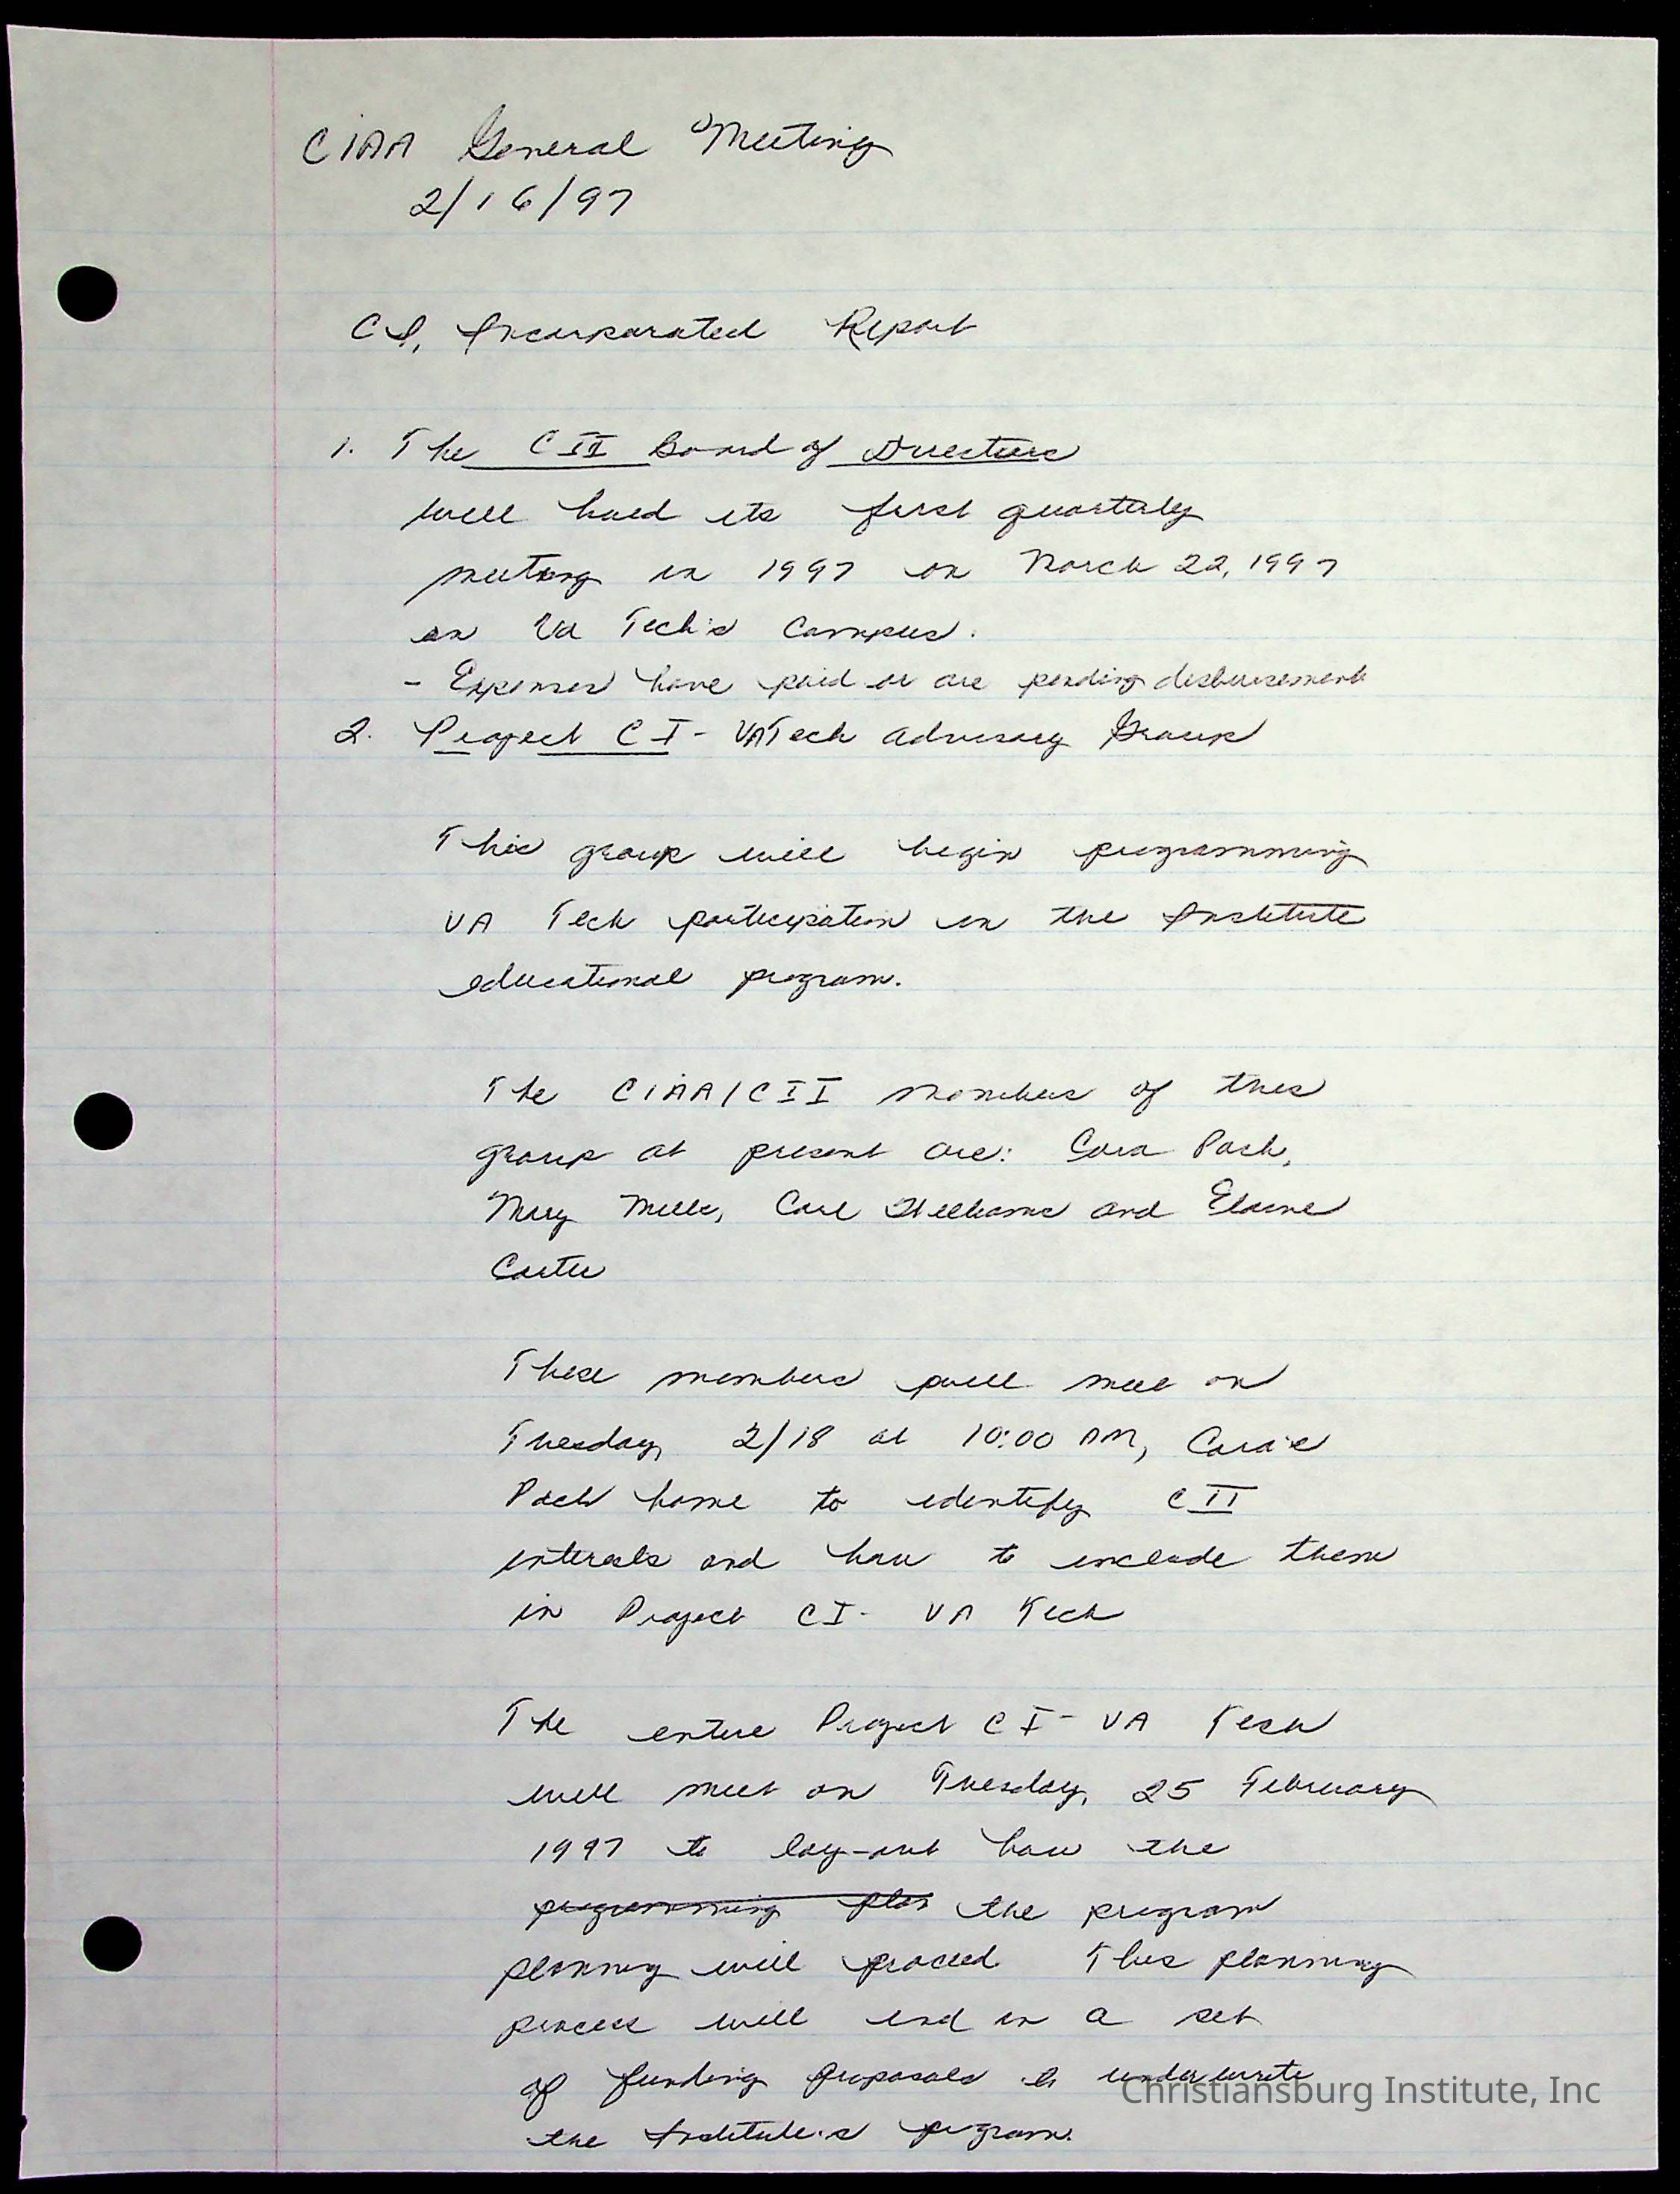 CIAA General Meeting
2/16/97
CI, Incorporated Report
1. The CII Board of Directors
will hold its first quarterly
meeting in 1997 on March 22, 1997
on Va Tech's Campus.
- Expenses have paid or are pending disbursement
2. Project CI - VATech Advisory Group
This group will begin programming
VA Tech participation in the Institute
educational program.
The CIAA/CII members of this
group at present are: Cora Pack,
Mary Mills, Carl Williams and Elaine
Carter
These members will meet on
Tuesday, 2/18 at 10:00 AM, Cora's
Pack home to identify CII
interests and how to include them
in Project CI - VA Tech
The entire Project CI - VA Tech
will meet on Tuesday, 25 February
1997 to lay-out how the
programming plan the program
planning will proceed This planning
process will end in a set
of funding proposals to underwrite
the Institute's program.
Christiansburg Institute, Inc